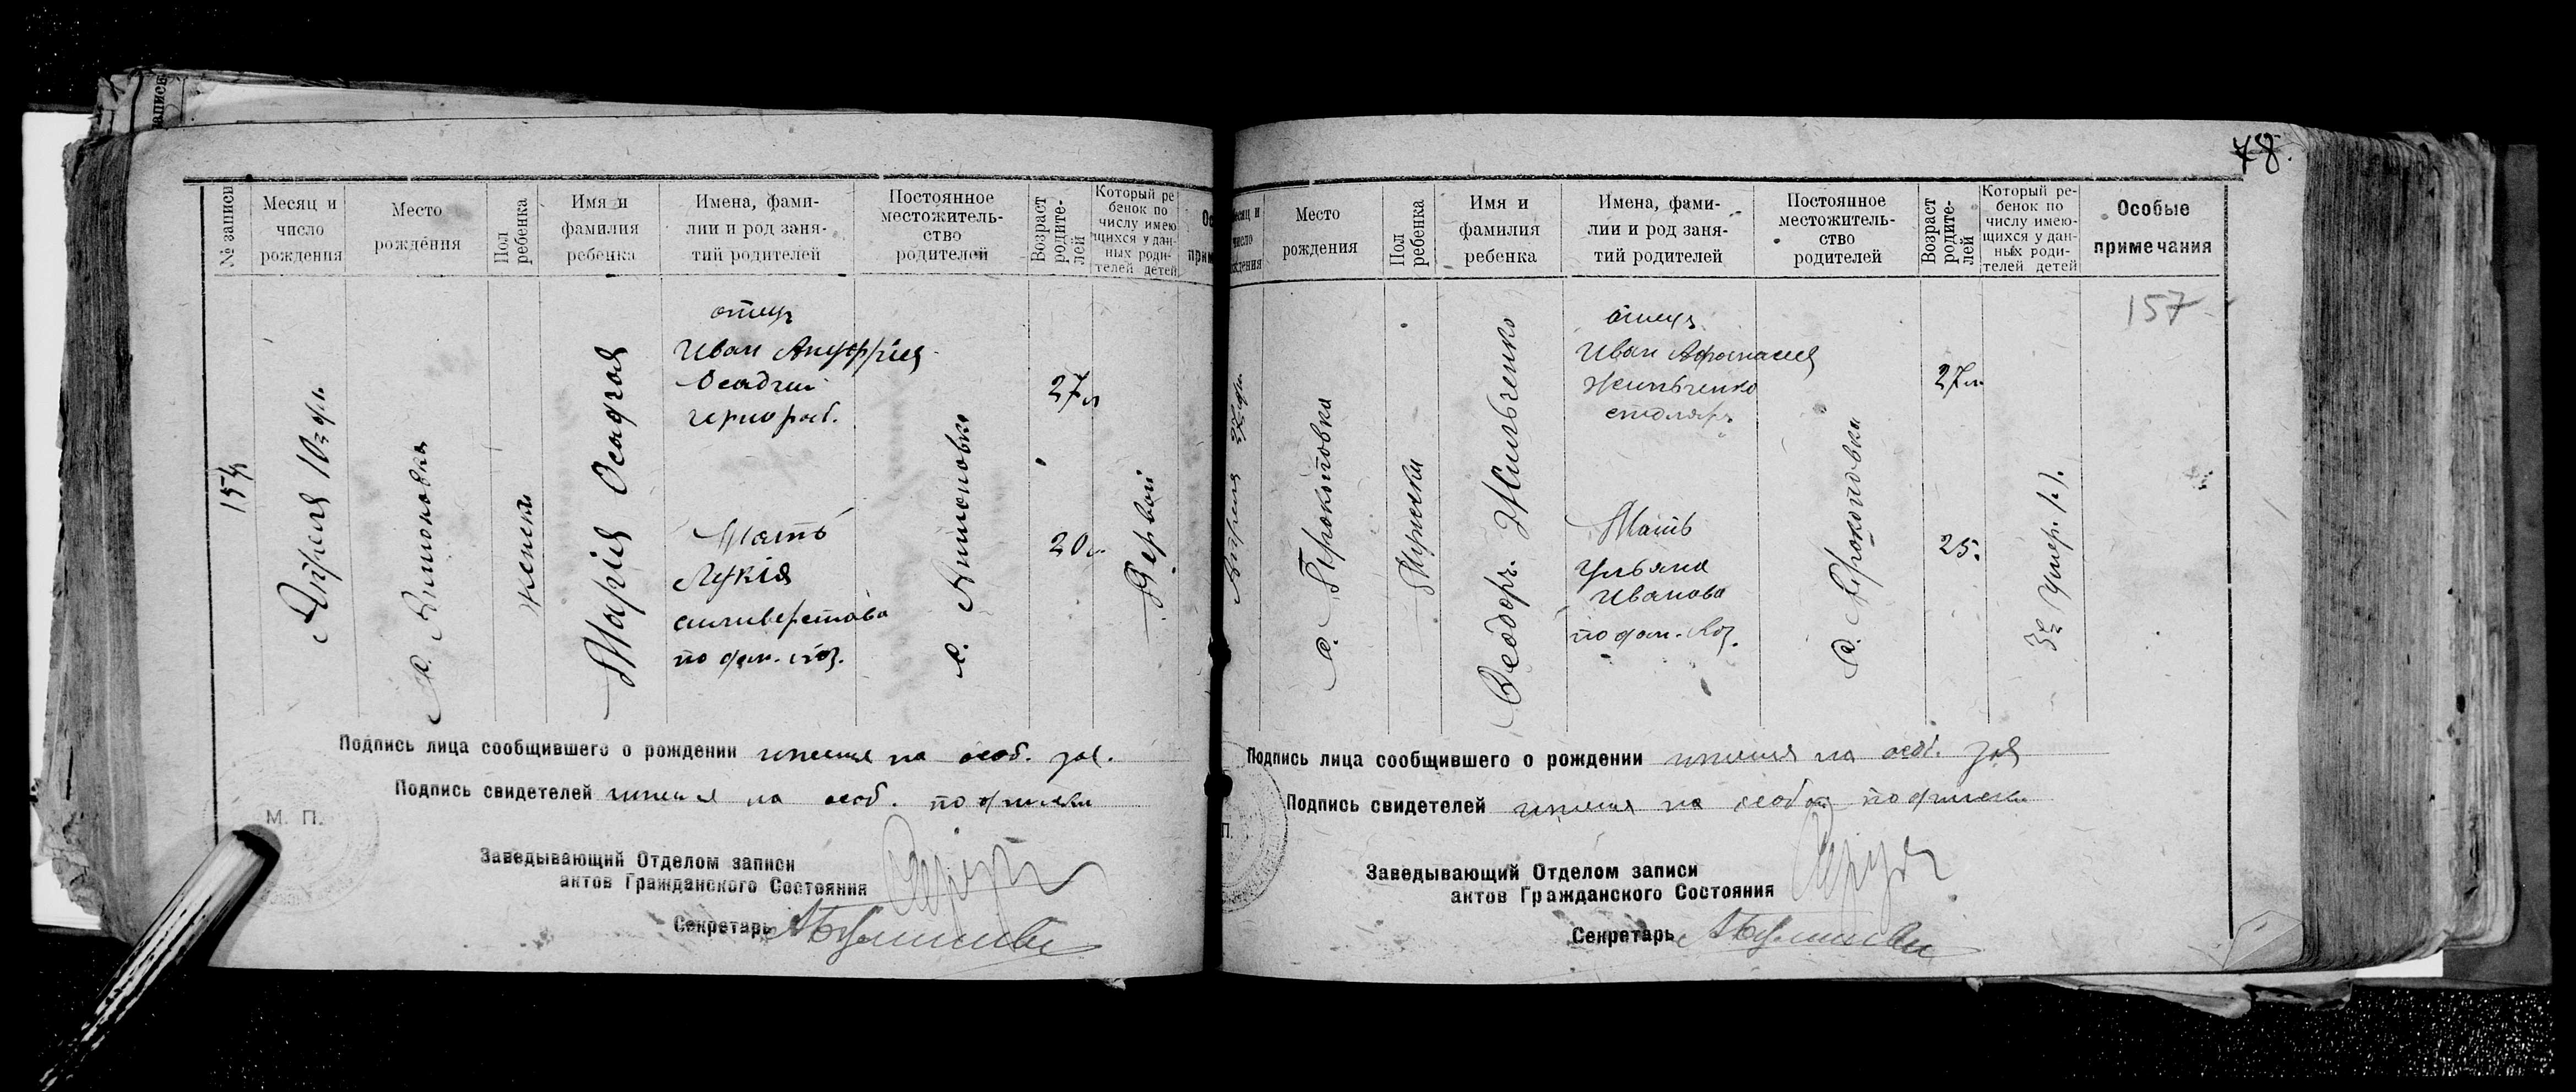 аписи
78.
№ записи
Месяц и число рождения
Место рождения
Пол ребенка
Имя и фамилия ребенка
Имена, фами-
лии и род заня-
тий родителей
Постоянное
местожитель-
ство
родителей
Возраст
родите-
лей
Который ре
бенок по
числу имею
щихся у дан-
ных роди-
телей детей
Ос
прим
Апреля 10го дн.
женски
Марія Осадчая
отец
Иван Ануффрія
Осадчий
чернораб.
Мать
Лукія
силиверстова
по дом. хоз.
27 л
20 л.
Первой
Подпись лица сообщившего о рождении имеется на особ. зая.
Подпись свидетелей имеется на особ. подписки
М. П.
Заведывающий Отделом записи
актов Гражданского Состояния
Секретарь
есяц и
число
ждения
Место
рождения
Пол
ребенка
Имя и
фамилия
ребенка
Имена, фами-
лии и род заня-
тий родителей
Постоянное
местожитель-
ство
родителей
Возраст
родите-
лей
Который ре-
бенок по
числу имею-
щихся у дан-
ных роди-
телей детей
Особые
примечания
157
Апреля
с. Прокоповка
Мужески
Феодоръ Жильченко
отец
Иван Афанасия
Жильченко
столяръ
Мать
Ульяна
Иванова
по дом. хоз.
с. Прокоповка
27 л.
25.
Подпись лица сообщившего о рождении имеется на особ. зая
Подпись свидетелей имеется на особой подписки
П.
Заведывающий Отделом записи
актов Гражданского Состояния
Секретарь